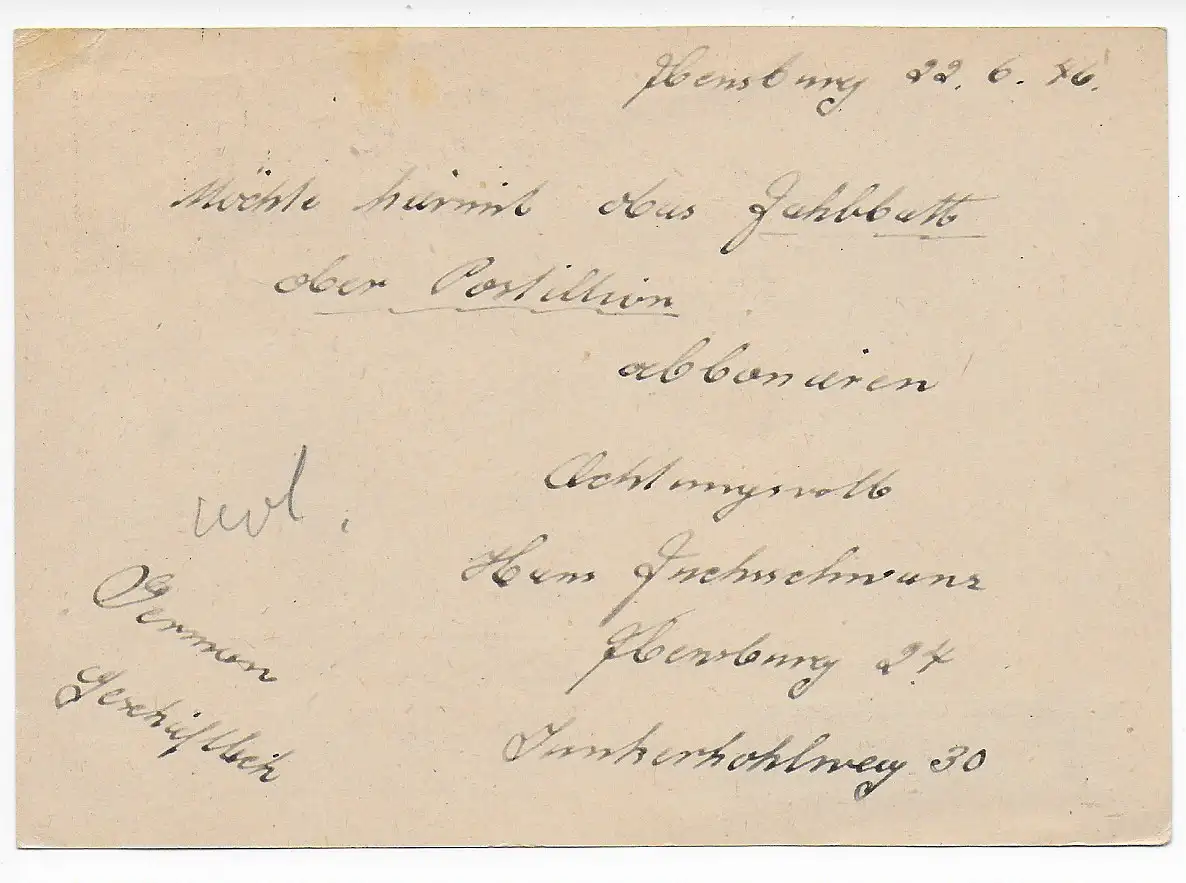 Flensburg 22. 6. 46.
Möchte hiermit das Fachblatt
der Postillion
abbonieren
Achtungsvoll
Hans Fuchsschwanz
Flensburg 24
Junkerhohlweg 30
German
Geschäftlich